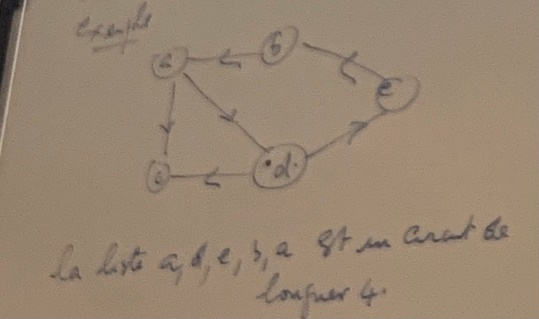 exemple
a b
e
c d
la liste a, d, e, b, a est un circuit de
longueur 4.